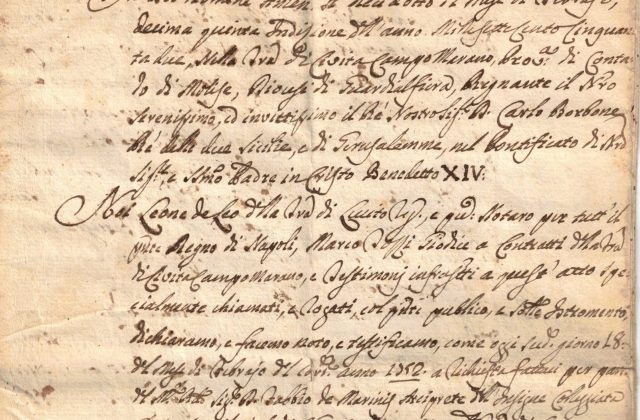 decima quinta Indizione dell'anno Millesett.Cento Cinquan
ta due, Nella Trã di Civita Campo Marano, Prov.ã di Conta
do di Molise, Diocesi di Guardialfiera, Regnante il Nr̃o
Serenissimo, ed invittissimo il Rè Nostro Sig.r D. Carlo Borbone
Rè delle due Sicilie, e di Gerusalemme, nel Pontificato di
Sig.r, e S.mo Padre in Cristo Benedetto XIV:
Noi Leone de Leo della Trã di e Notaro per tutt'il
Regno di Napoli, Marco Giodice a Contratti della
di Civita Campo Marano, e Testimonj infrascti a quest'atto spe
cialmente chiamati, e Rogati, col publico, e Istromento,
dichiaramo, e facemo noto, e testificamo, come oggi sud. giorno 18.
del Mese di Febraro del corr. anno 1752. a richiesta fattaci per parte
del Sig.r D. de Marinis Arciprete dell'Insigne Collegiata